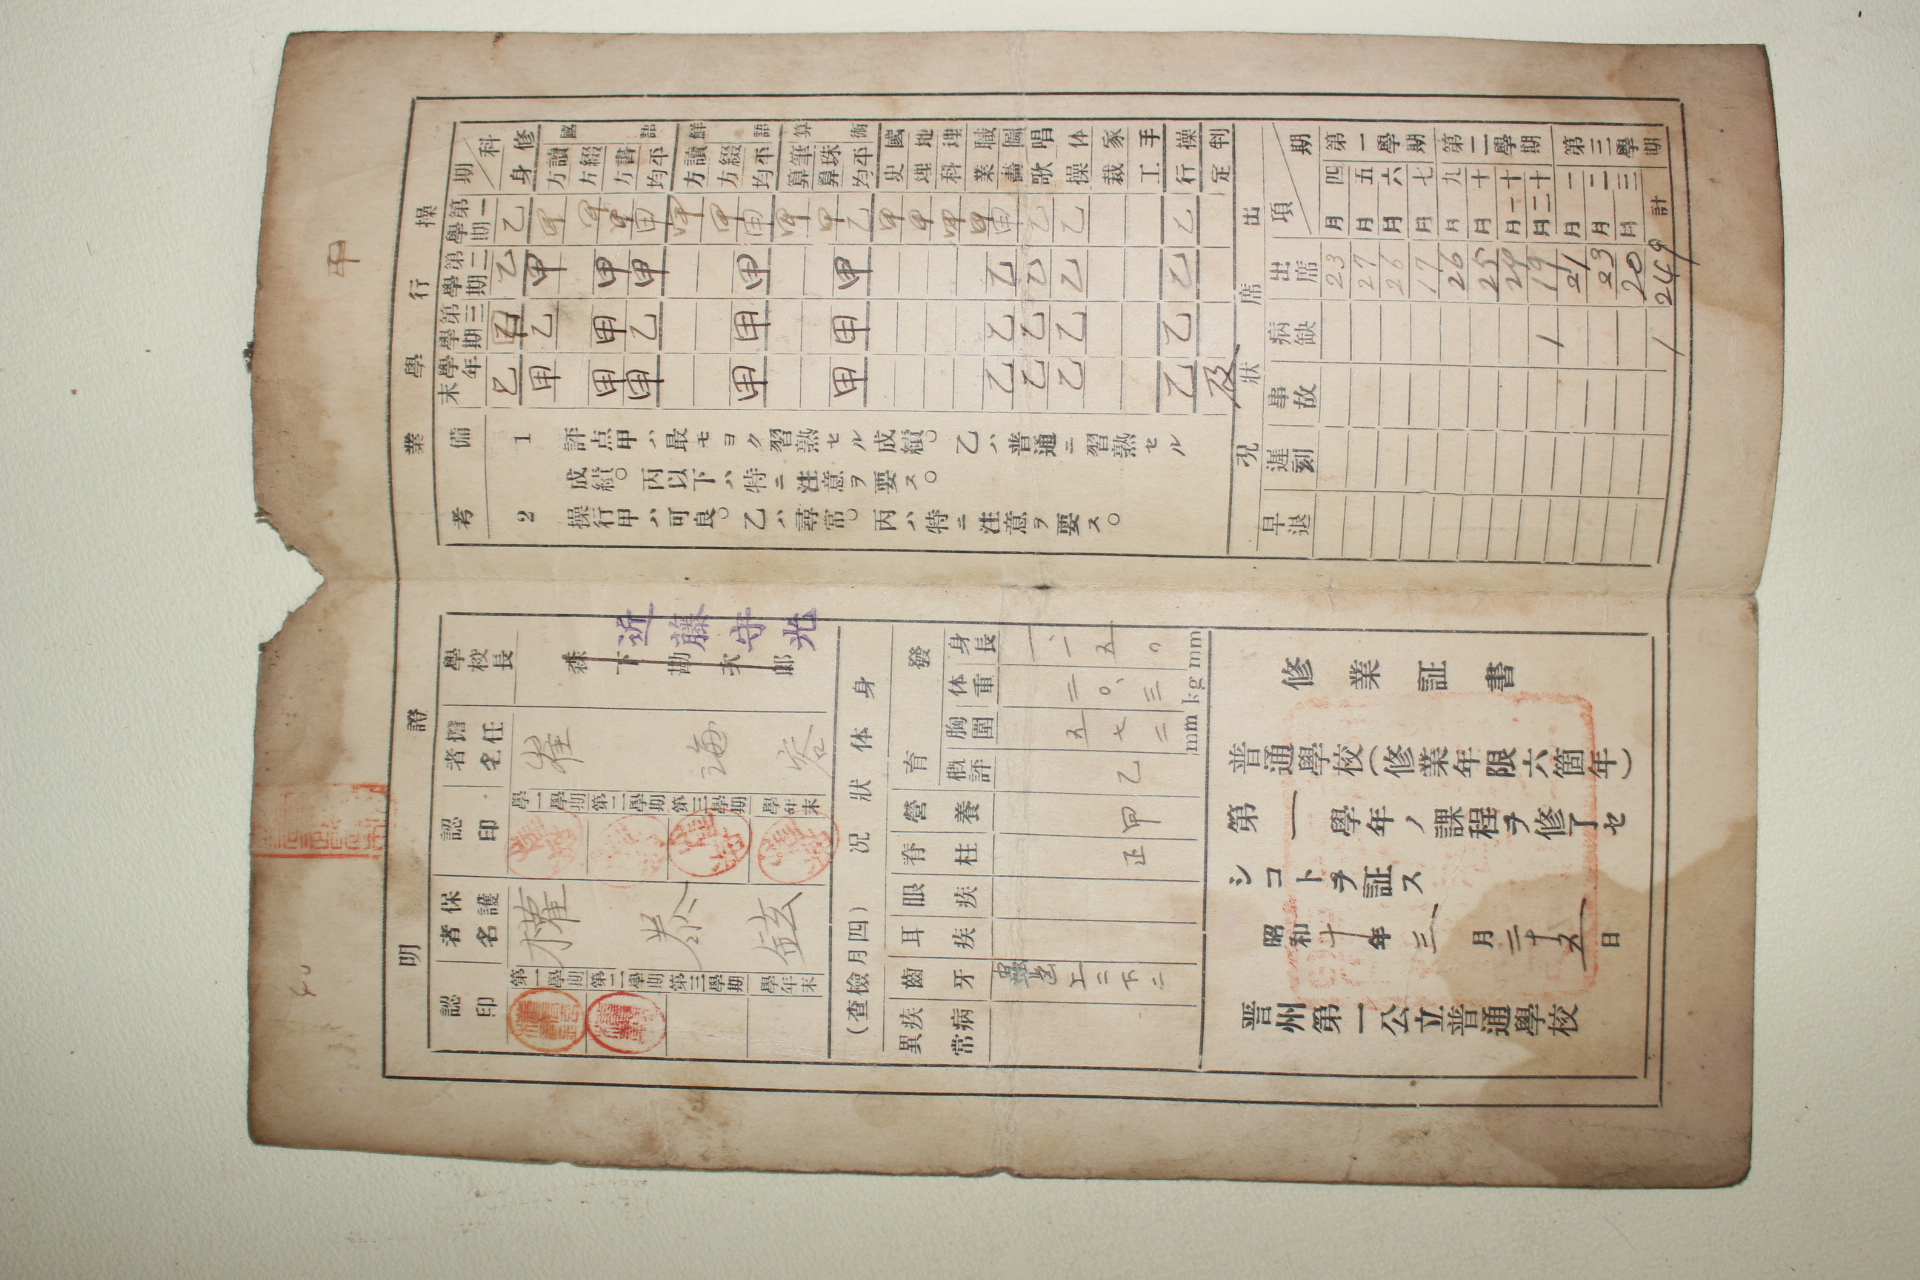 學業操行
科 期 第一學期 第二學期 第三學期 學年末
修身 乙 乙 乙
國語 讀方 甲 甲 乙 甲
綴方 甲
書方 甲 甲 甲 甲
平均 甲 甲 乙 甲
朝鮮語 讀方 甲
綴方 甲
平均 甲 甲 甲 甲
算術 筆算 甲
珠算 甲
平均 乙 甲 甲 甲
國史 甲
地理 甲
理科 甲
職業 甲 乙 乙 乙
圖畵 乙 乙 乙
唱歌 乙 乙 乙 乙
体操 乙 乙 乙 乙
家裁
手工
操行 乙 乙 乙 乙
判定 及
備考
1 評点甲ハ最モヨク習熟セル成績。乙ハ普通ニ習熟セル
成績。丙以下ハ特ニ注意ヲ要ス。
2 操行甲ハ可良。乙ハ尋常。丙ハ特ニ注意ヲ要ス。
出席狀況
期 項 出席 病缺 事故 遲刻 早退
第一學期 四月 23
五月 27
六月 26
七月 17
第二學期 九月 26
十月 25
十一月 24
十二月 19 1
第三學期 一月 21
二月 23
三月 20
計 249 1
證明
學校長 森下勘次郎
近藤守光
擔任者名 崔 海 容
認印 第一學期 第二學期 第三學期 學年末
保護者名 權 泰 鉉
認印 第一學期 第二學期 第三學期 學年末
身体狀況(四月檢查)
發育 身長 一一、五〇 mm
体重 二〇、三 kg
胸圍 五七二 mm
概評 乙
營養 甲
脊柱 正
眼疾
耳疾
齒牙 蟲齒 上二下二
疾病異常
修業証書
普通學校(修業年限六箇年)
第一學年ノ課程ヲ修了セ
シコトヲ証ス
昭和十年三月二十五日
晋州第一公立普通學校
甲